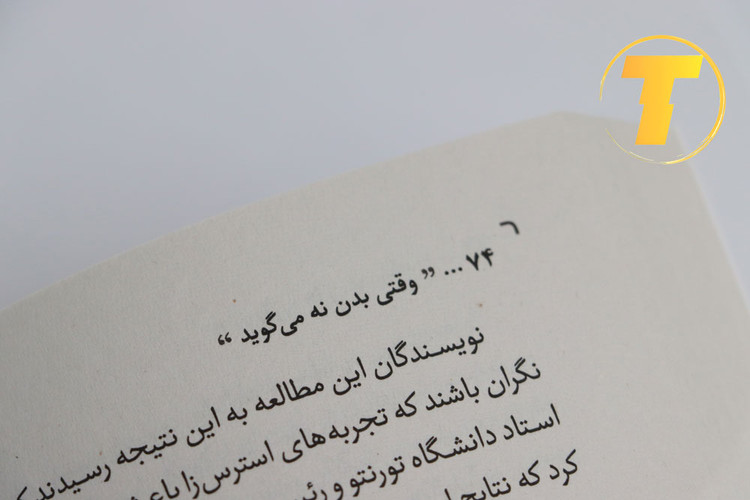 T
۷۴ ... ” وقتی بدن نه می‌گوید “
نویسندگان این مطالعه به این نتیجه رسیدند
نگران باشند که تجربه‌های استرس‌زا باعث
استاد دانشگاه تورنتو و
کرد که